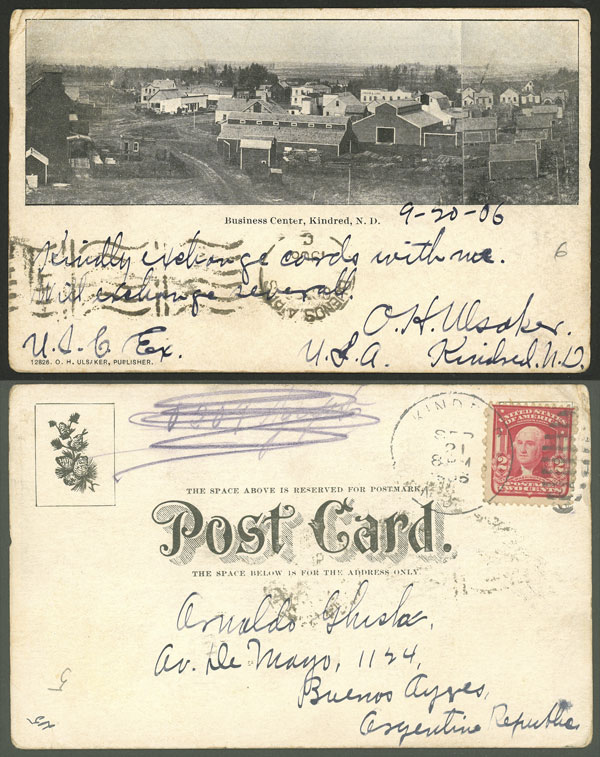 Business Center, Kindred, N. D.
9-20-06
Kindly exchange cards with me.
Will exchange severall.
O. H. Ulsaker.
U.S.C Ex. U.S.A. Kindred. N.D.
12828. O. H. ULSAKER, PUBLISHER.
6
KINDRE
SEP
21
8 AM
UNITED STATES
OF AMERICA
2 2
POSTAGE
TWO CENTS
THE SPACE ABOVE IS RESERVED FOR POSTMARK.
Post Card.
THE SPACE BELOW IS FOR THE ADDRESS ONLY
Arnaldo
Av. De Mayo, 1124,
Buenos Ayres,
Argentine Republic
5